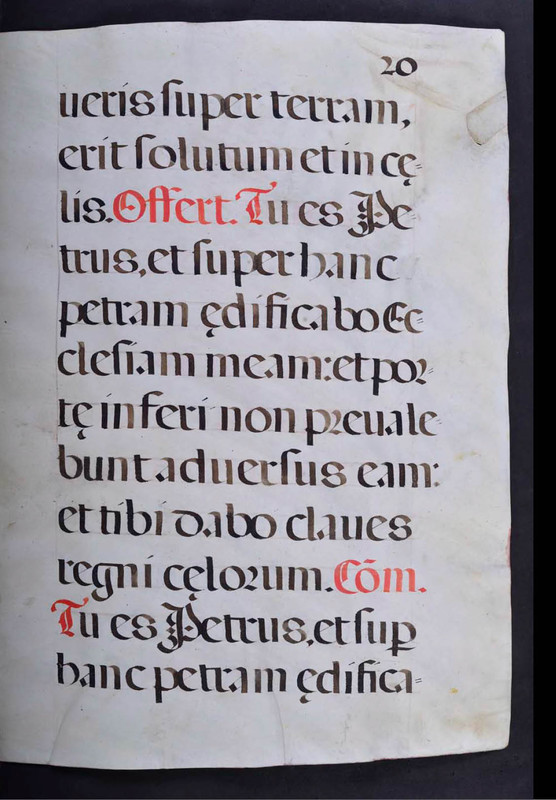 20
ueris ſuper terram,
erit ſolutum et in cę=
lis. Offert. Tu es Pe=
trus, et ſuper hanc
petram ędificabo Ec=
cleſiam meam: et por=
tę inferi non preuale=
bunt aduerſus eam:
et tibi dabo claues
regni cęlorum. Cōm.
Tu es Petrus, et ſuꝑ
hanc petram ędifica=